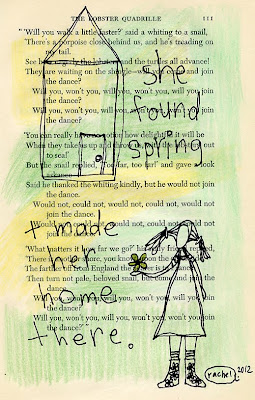 THE LOBSTER QUADRILLE 111
"'Will you walk a little faster?' said a whiting to a snail,
There's a porpoise close behind us, and he's treading on
my tail.
See how eagerly the lobsters and the turtles all advance!
They are waiting on the shingle—will you come and join
the dance?
Will you, won't you, will you, won't you, will you join
the dance?
Will you, won't you, will you, won't you, won't you join
the dance?
'You can really have no notion how delightful it will be
When they take us up and throw us, with the lobsters, out
to sea!'
But the snail replied, 'Too far, too far!' and gave a look
Said he thanked the whiting kindly, but he would not join
the dance.
Would not, could not, would not, could not, would not
join the dance.
Would not, could not, would not, could not, could not join
the dance.
'What matters it how far we go?' his scaly friend replied,
There is another shore, you know, upon the other side.
The farther off from England the nearer is to France—
Then turn not pale, beloved snail, but come and join
the dance.
Will you, won't you, will you, won't you, will you join
the dance?
Will you, won't you, will you, won't you, won't you join
the dance?'"
she
found
spring
+ made
her
home
there.
rachel 2012